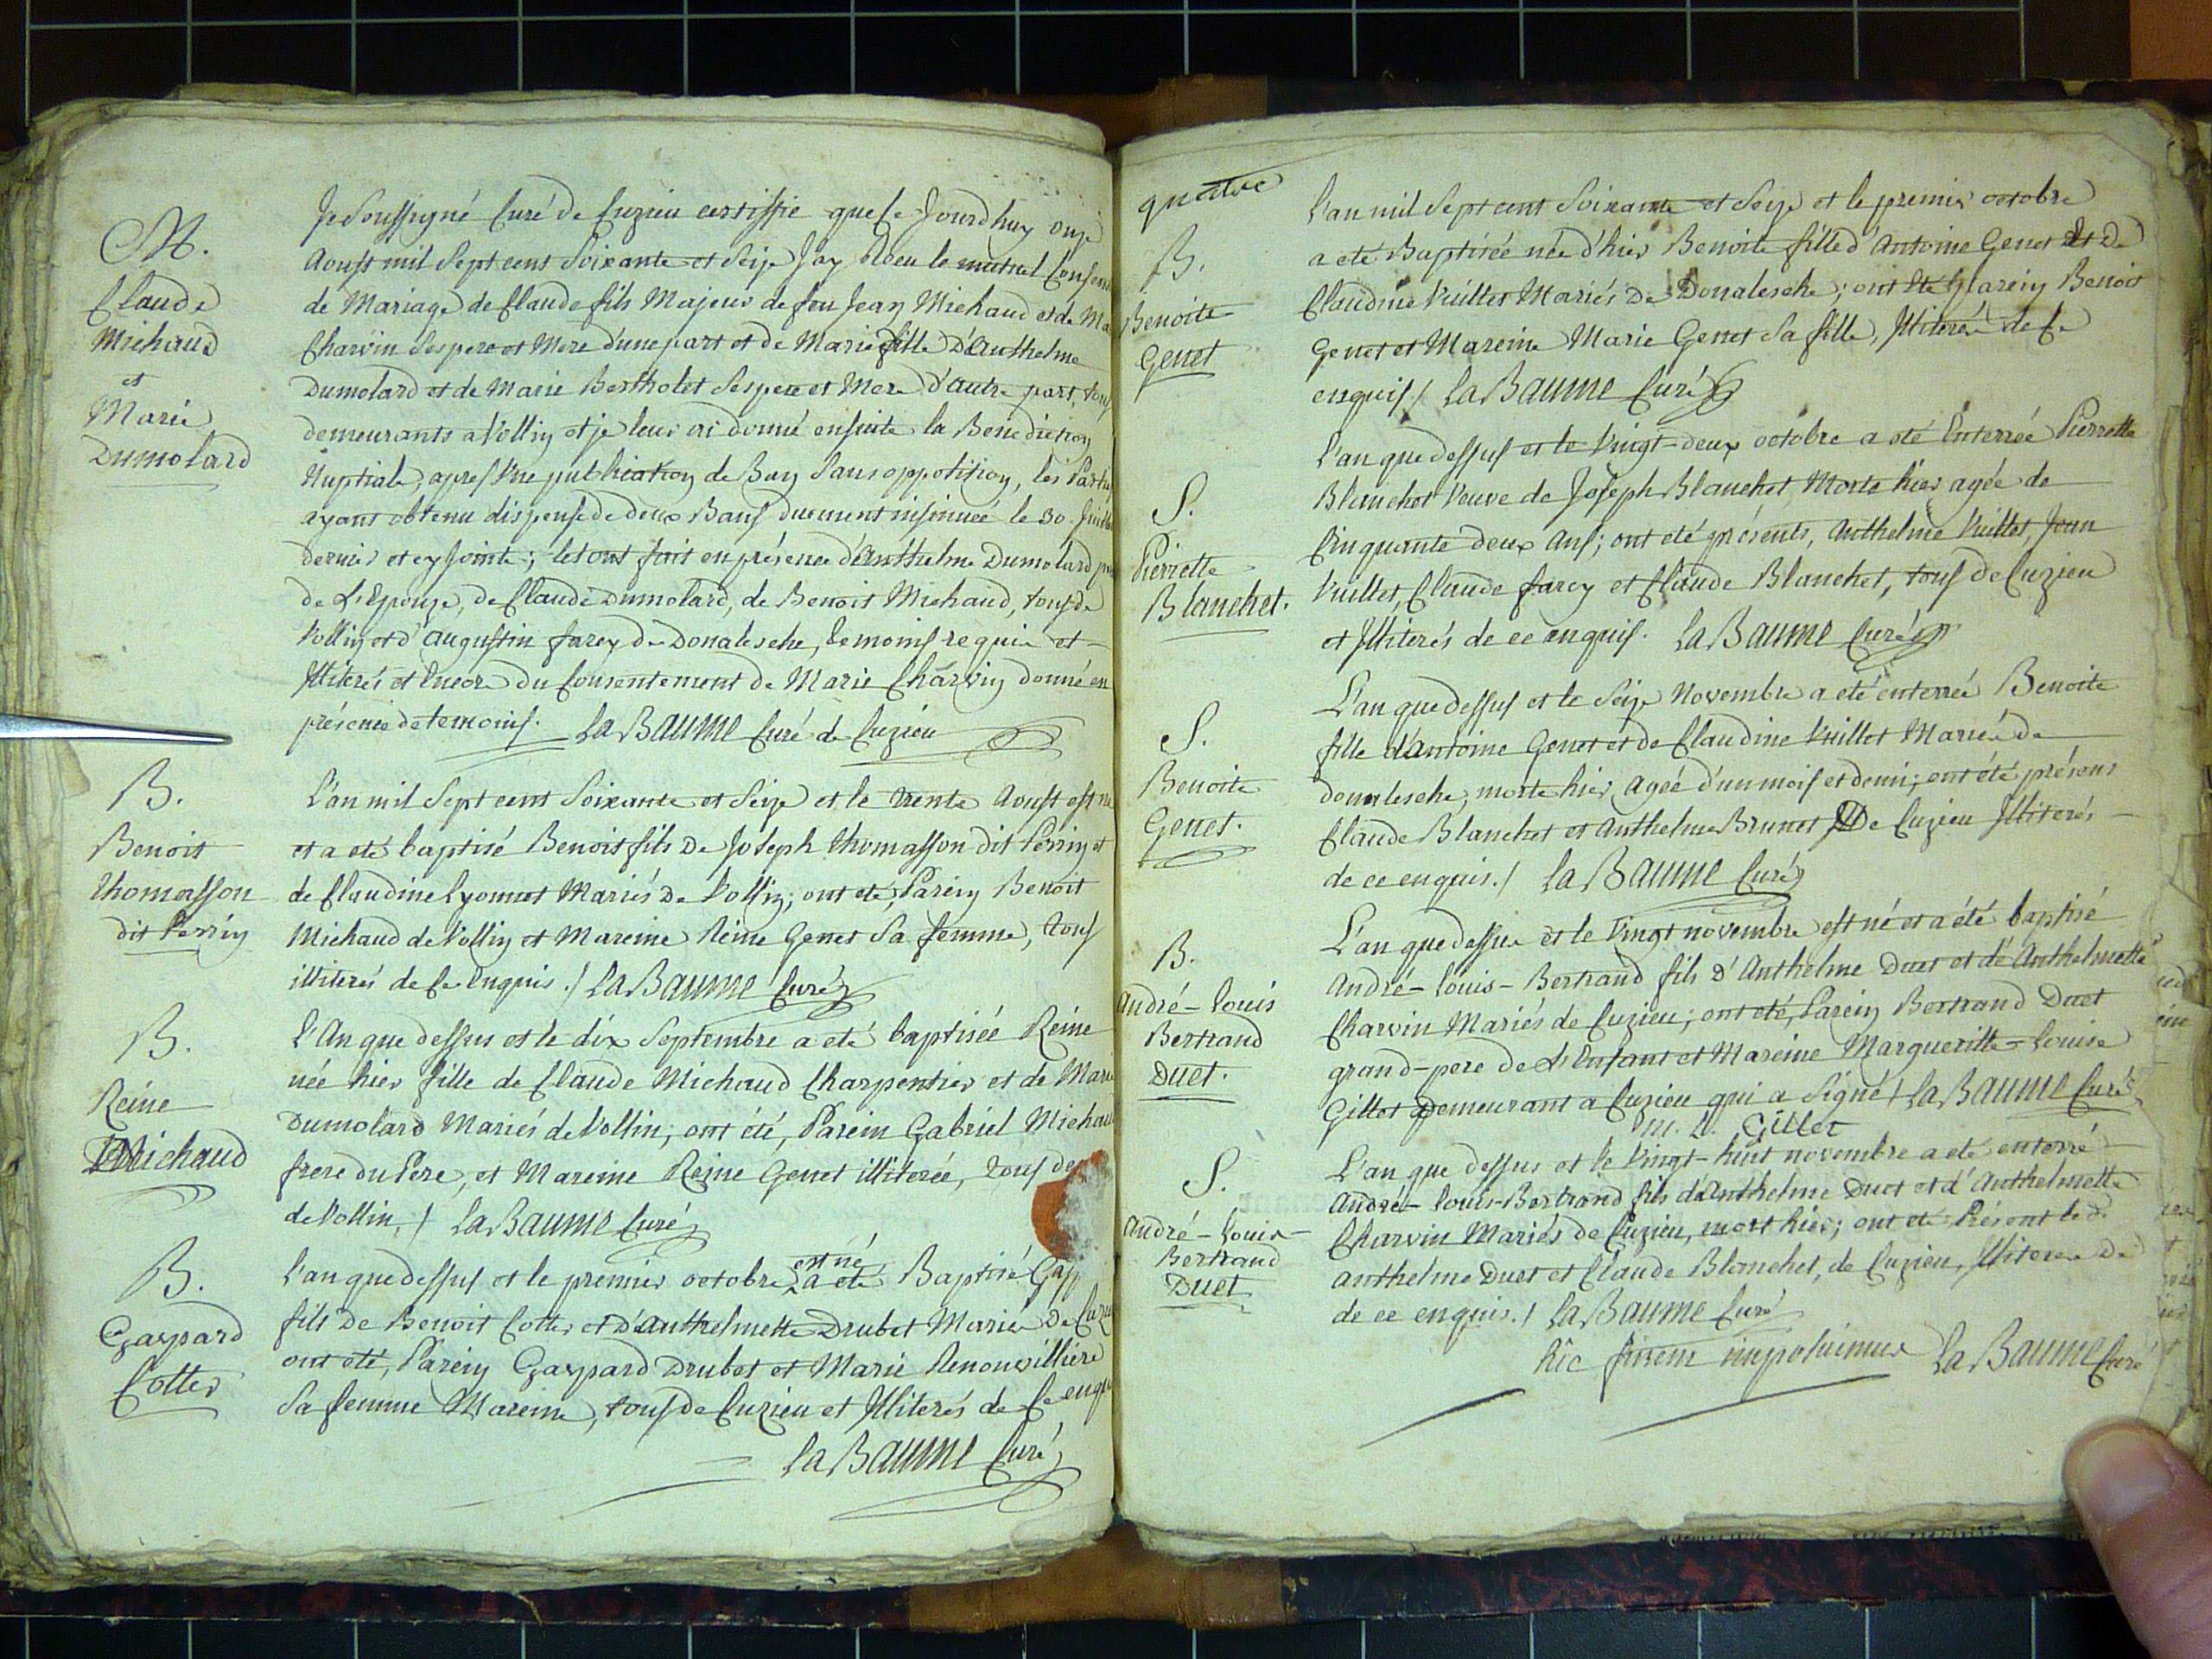 M.
Claude
Michaud
et
Marie
Dumolard
Je Soussigné Curé de Cuzieu certiffie que Ce Jourdhuy onze
Aoust mil Sept cent Soixante et Seize Jay Reçu le mutuel
de Mariage de Claude fils Majeur de feu Jean Michaud et de
Charvin Ses pere et Mere d'une part et de Marie fille D'Anthelme
Dumolard et de Marie Bertholet Ses pere et Mere d'autre part, tous
demeurants a Vollin et je leur ai donné ensuite la Benediction
Nuptiale, apres Une publication de Ban Sans oppotition, les
ayant obtenu dispense de deux Bans duement insinuée le 30
dernier et cy Jointe; le tout fait en présence d'Anthelme Dumolard
de L'Epouze, de Claude Dumolard, de Benoit Michaud, tous de
Vollin et d'augustin farcy de Donalesche, temoins requis et
Illiterés et Encore du Consentement de Marie Charvin donné en
présence de temoins. La Baume Curé de Cuzieu
B.
Benoit
thomasson
dit Perrin
L'an mil Sept cent Soixante et Seize et le trente Aoust est né
et a eté baptisé Benoit fils De Joseph thomasson dit Perrin et
de Claudine Lyonnet Mariés De Vollin; ont eté, Parein Benoit
Michaud de Vollin et Mareine Reine Genet Sa femme, tous
illiterés de Ce Enquis./ La Baume Curé
B.
Reine
Michaud
L'An que dessus et le dix Septembre a eté baptisée Reine
née hier fille de Claude Michaud Charpentier et de Marie
Dumolard Mariés de Vollin; ont été, Parein Gabriel Michaud
frere du Pere, et Mareine Reine Genet illiterée, tous de
de Vollin,/ La Baume Curé
B.
Gaspard
Cotter
est né
L'an que dessus et le premier octobre a eté Baptisé Gasp
fils De Benoit Cotter et D'Anthelmette Drubet Mariés De
ont eté, Parein Gaspard Drubet et Marie Renouvilliere
Sa femme Mareine, tous de Cuzieu et Illiterés de Ce enquis
La Baume Curé
quatre
B.
Benoite
Genet
L'an mil Sept cent Soixante et Seize et le premier octobre
a eté Baptisée née d'hier Benoite fille d'Antoine Genet et De
Claudine Vuillet Mariés De Donalesche; ont Eté Parein Benoit
Genet et Mareine Marie Genet Sa fille, Illiterés de Ce
enquis/ La Baume Curé
S.
Pierrette
Blanchet.
L'an que dessus et le Vingt-deux octobre a eté Enterrée Pierrette
Blanchet Veuve de Joseph Blanchet, Morte hier agée de
Cinquante deux ans; ont eté présents, Anthelme Vuillet, Jean
Vuillet, Claude farcy et Claude Blanchet, tous de Cuzieu
et Illiterés de ce enquis. La Baume Curé
S.
Benoite
Genet.
L'an que dessus et le Seize Novembre a eté enterrée Benoite
fille d'Antoine Genet et de Claudine Vuillet Mariés de
donalesche, morte hier, agée d'un mois et demi; ont été présens
Claude Blanchet et Anthelme Brunet De Cuzieu Illiterés
de ce enquis./ La Baume Curé
B.
André-Louis
Bertrand
Duet.
L'an que dessus et le Vingt novembre est né et a été baptisé
André-Louis-Bertrand fils D'Anthelme Duet et de Anthelmette
Charvin Mariés de Cuzieu; ont eté, Parein Bertrand Duet
grand-pere de L'Enfant et Mareine Margueritte-Louise
Gillet demeurant a Cuzieu qui a Signé/ La Baume Curé
m. L. Gillet
S.
André-Louis-
Bertrand
Duet
L'an que dessus et le Vingt-huit novembre a eté enterré
André-Louis-Bertrand fils d'Anthelme Duet et d'Anthelmette
Charvin Mariés de Cuzieu, mort hier; ont eté Présent led.
Anthelme Duet et Claude Blanchet, de Cuzieu, Illiterés De
de ce enquis./ La Baume Curé
hîc finem imposuimus La Baume Curé